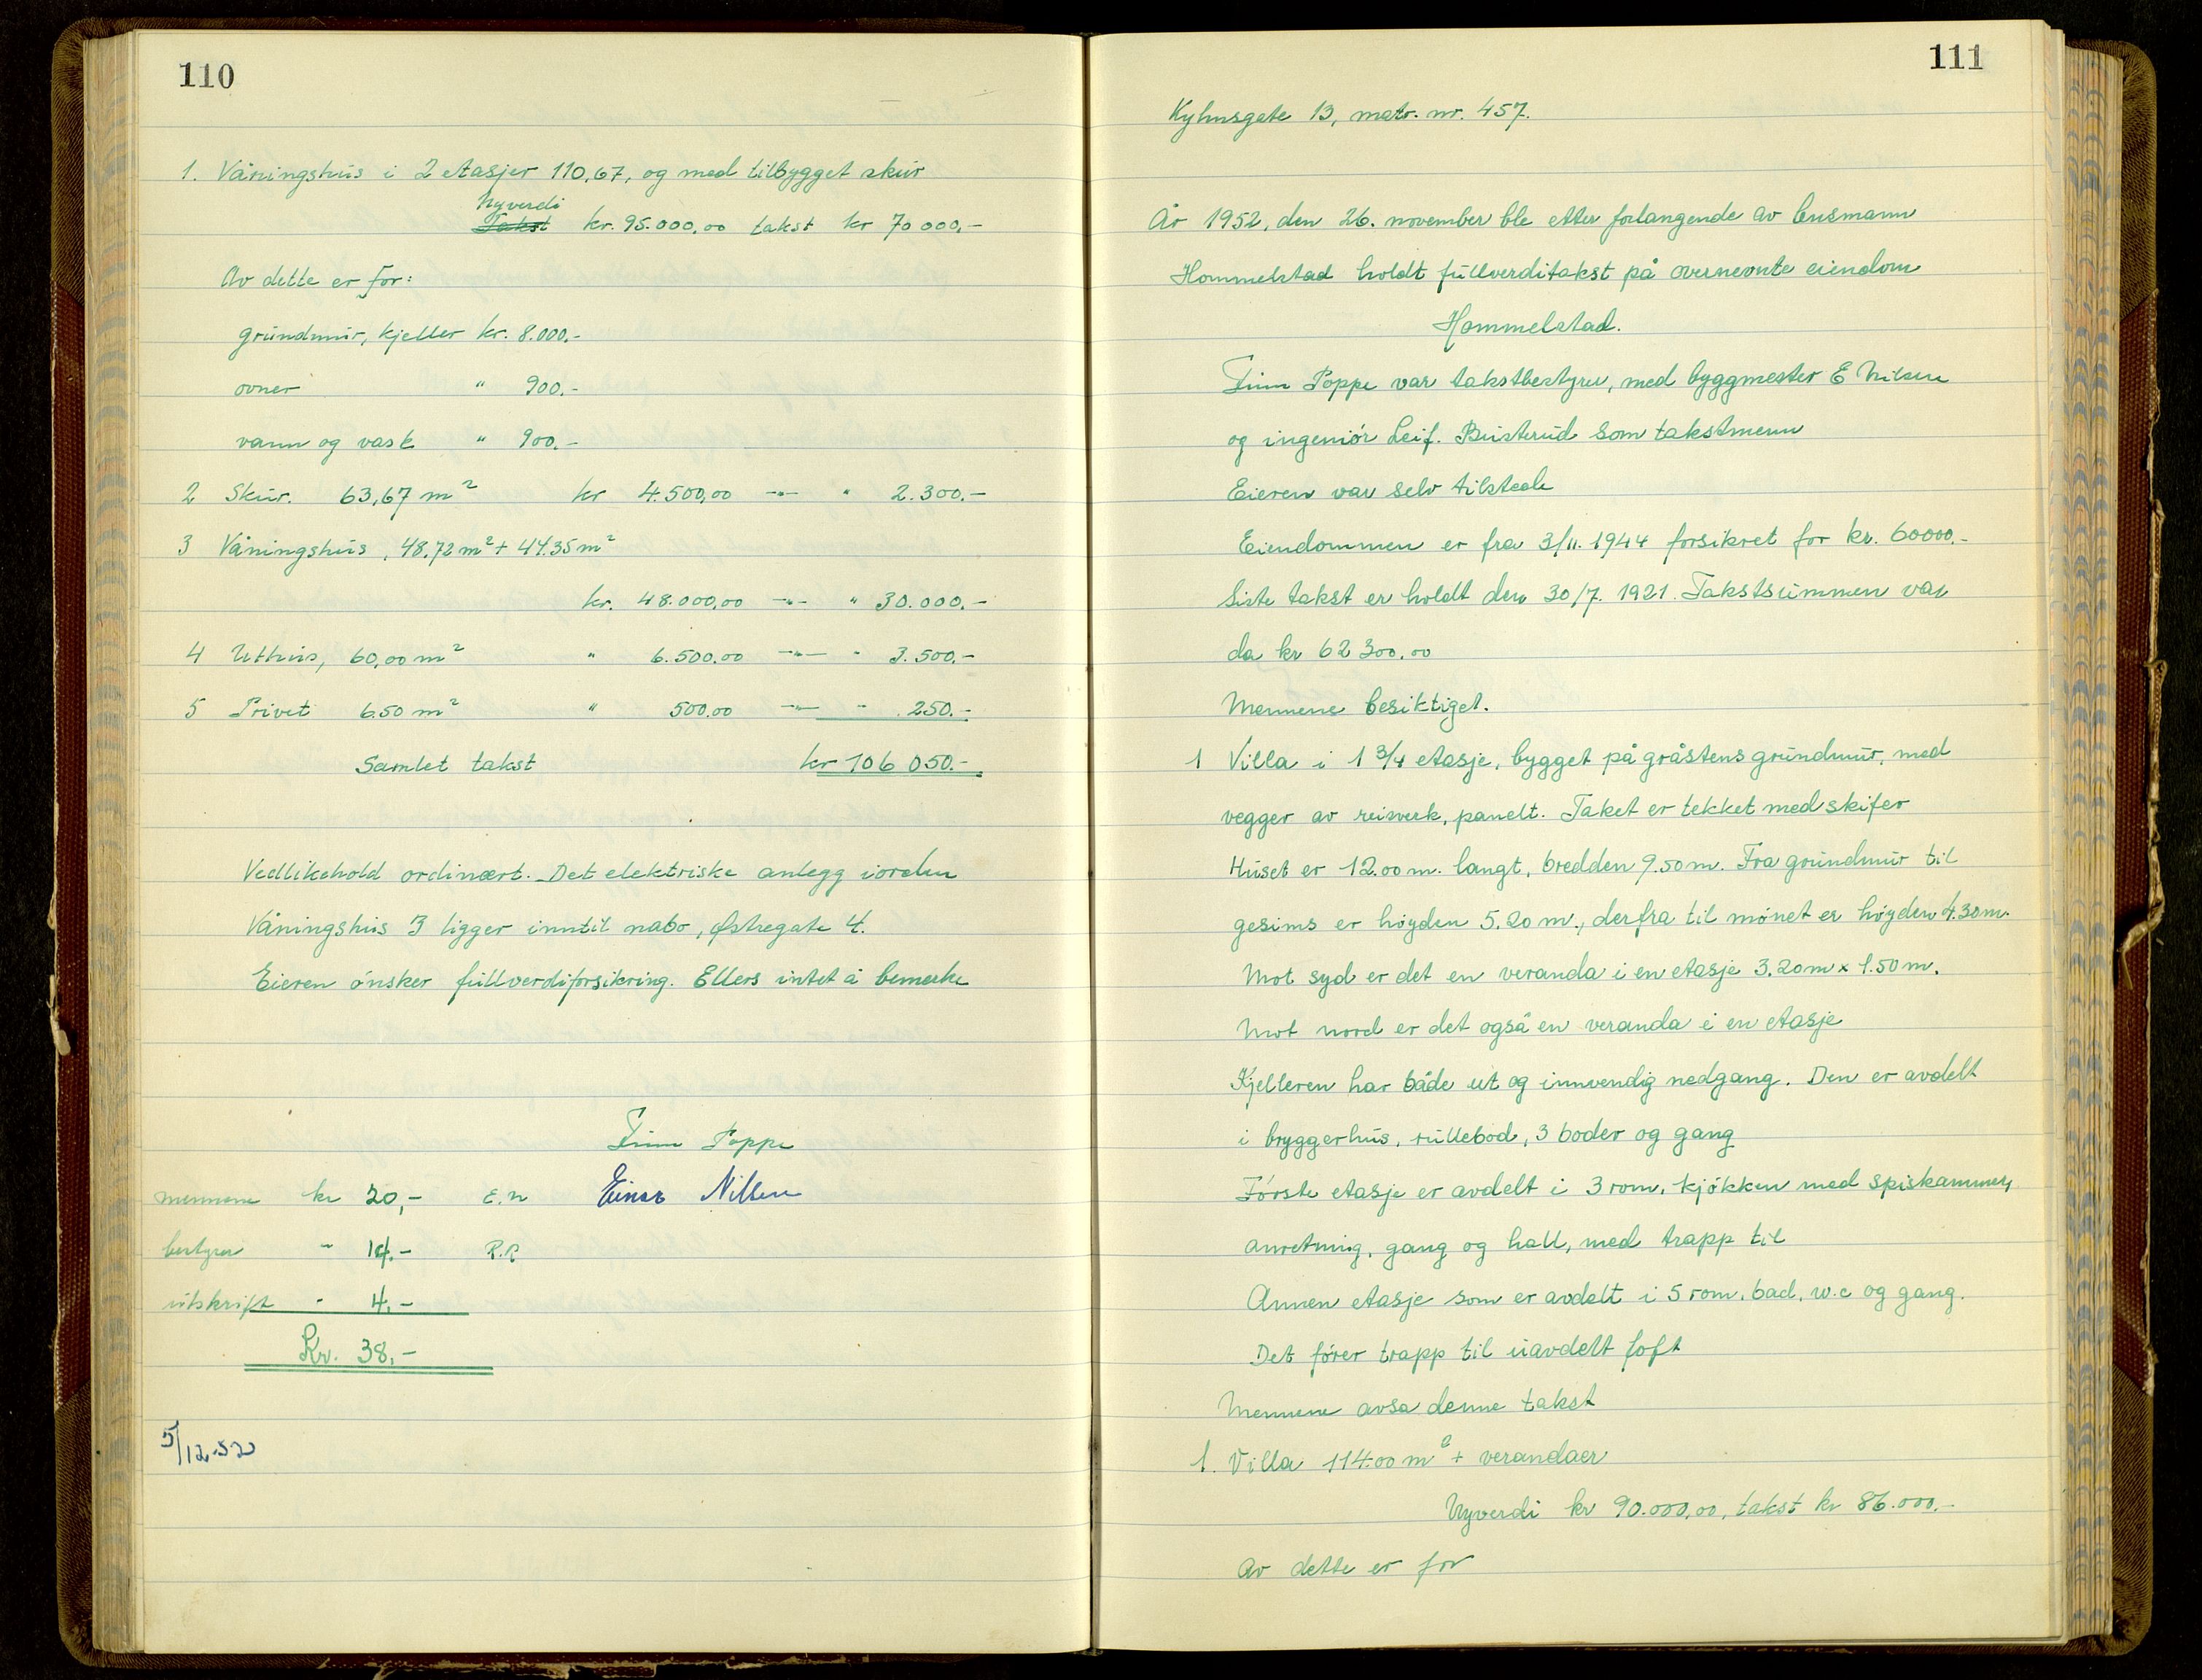 110
1. Våningshus i 2 etasjer 110,67, og med tilbygget skur
Nyverdi
Takst kr. 95.000,00 takst kr 70 000,-
Av dette er for:
grundmur, kjeller kr. 8.000.-
ovner " 900.-
vann og vask " 900.-
2 Skur. 63,67 m² kr 4.500,00 -"- " 2.300.-
3 Våningshus, 48.72 m² + 44.35 m²
kr. 48.000,00 -"- " 30.000.-
4 Uthus, 60,00 m² " 6.500.00 -"- " 3.500.-
5 Privet 6.50 m² " 500.00 -"- " 250.-
Samlet takst kr 106 050.-
Vedlikehold ordinært. Det elektriske anlegg iorden
Våningshus 3 ligger inntil nabo, Østregate 4.
Eieren ønsker fullverdiforsikring. Ellers intet å bemerke
Finn Poppe
mennene kr 20,- E.N Einar Nilsen
bestyrer " 14.-
utskrift " 4.-
Kr. 38,-
5/12-52
111
Kyhnsgate 13, matr. nr. 457.
År 1952, den 26. november ble etter forlangende av lensmann
Hommelstad holdt fullverditakst på overnevnte eiendom
Hommelstad.
Finn Poppe var takstbestyrer, med byggmester E Nilsen
og ingeniør Leif. Busterud som takstmenn
Eieren var selv tilstede
Eiendommen er fra 3/11. 1944 forsikret for kr. 60000.-
Siste takst er holdt den 30/7. 1921. Takstsummen var
da kr 62 300.00
Mennene besiktiget.
1 Villa i 1 3/4 etasje, bygget på gråstens grundmur, med
vegger av reisverk, panelt. Taket er tekket med skifer
Huset er 12.00 m. langt, bredden 9.50 m. Fra grundmur til
gesims er høyden 5.20 m., derfra til mønet er høyden 4.30 m.
Mot syd er det en veranda i en etasje 3.20 m x 1.50 m.
Mot nord er det også en veranda i en etasje
Kjelleren har både ut og innvendig nedgang. Den er avdelt
i bryggerhus, rullebod, 3 boder og gang
Første etasje er avdelt i 3 rom, kjøkken med spiskammer,
anretning, gang og hall, med trapp til
Annen etasje som er avdelt i 5 rom, bad, w.c og gang.
Det fører trapp til uavdelt loft
Mennene avsa denne takst
1. Villa 114.00 m² + verandaer
Nyverdi kr 90.000,00, takst kr 86.000.-
Av dette er for